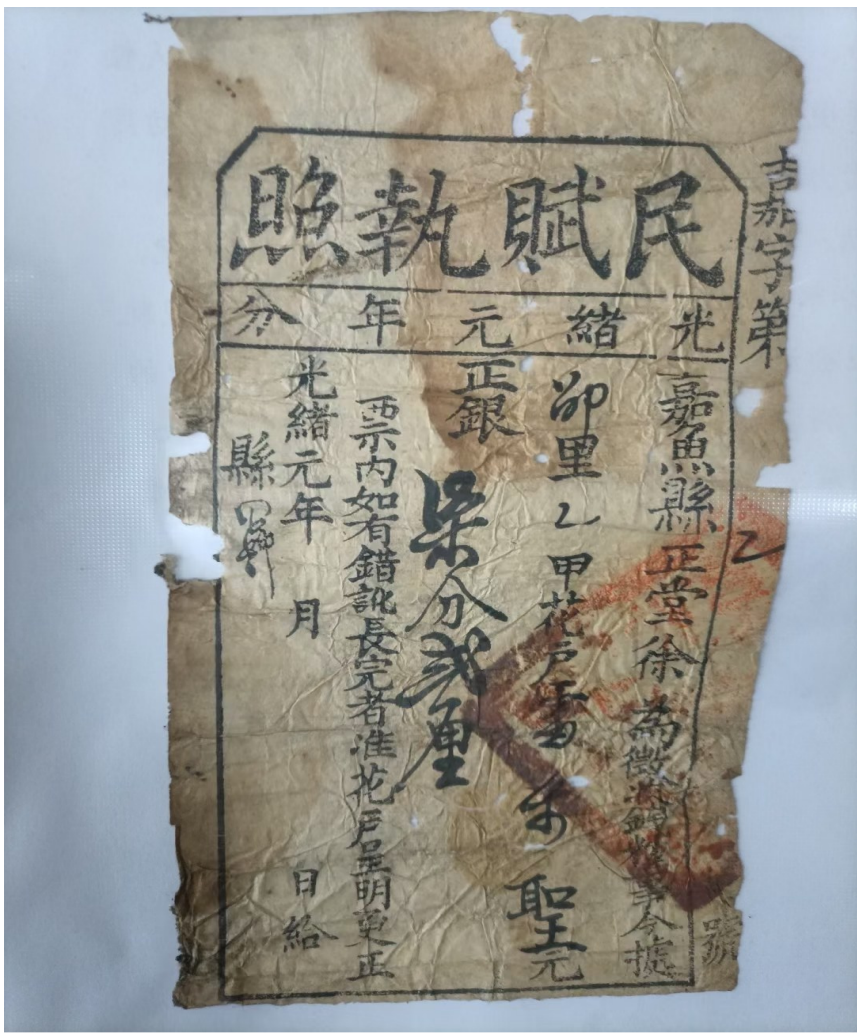 民賦執照
光緒元年分
嘉字第
號
嘉魚縣正堂徐為徵收錢糧事今據
里乙甲花戶雷 聖元
正銀
柒分貳厘
票內如有錯訛長完者准花戶呈明更正
光緒元年 月 日給
縣